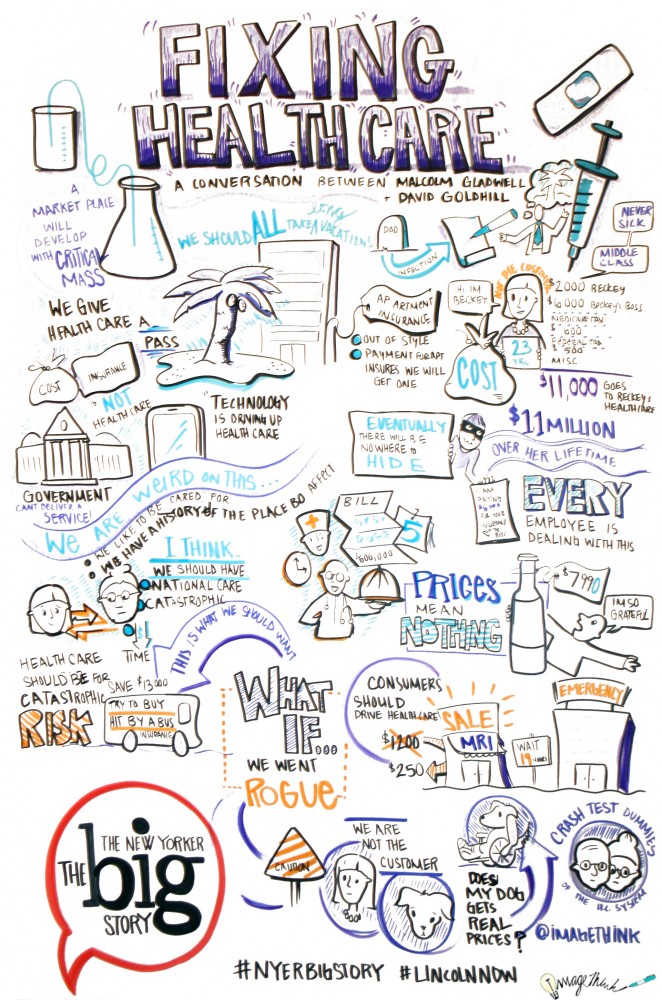 FIXING
HEALTH CARE
A CONVERSATION BETWEEN MALCOLM GLADWELL
+ DAVID GOLDHILL
A
MARKET PLACE
WILL
DEVELOP
WITH CRITICAL
MASS
WE SHOULD ALL TAKE A VACATION!
DAD
INFECTION
NEVER
SICK
MIDDLE
CLASS
WE GIVE
HEALTH CARE A
PASS
COST
INSURANCE
NOT
HEALTH CARE
APARTMENT
INSURANCE
OUT OF STYLE
PAYMENT FOR APT
INSURES WE WILL
GET ONE
HI IM
BECKEY
23
YRS
COST
$2000 BECKEY
BECKEY'S BOSS
MEDICARE TAX
$ 600
FEDERAL TAX
$ 500
MISC
$11,000 GOES
TO BECKEY'S
HEALTHCARE
"TECHNOLOGY
IS DRIVING UP
HEALTH CARE
GOVERNMENT
CAN'T DELIVER A
SERVICE!
EVENTUALLY
THERE WILL BE
NOWHERE TO
HIDE
$11 MILLION
OVER HER LIFETIME
EVERY
EMPLOYEE IS
DEALING WITH THIS
WE ARE WEIRD ON THIS...
WE LIKE TO BE CARED FOR
WE HAVE A HISTORY OF THE PLACE BO AFFECT
I THINK...
WE SHOULD HAVE
NATIONAL CARE
CATASTROPHIC
BILL
5
TIME
PRICES
MEAN
NOTHING
$7990
IM SO
GRATEFUL
THIS IS WHAT WE SHOULD WANT
HEALTH CARE
SHOULD BE FOR
CATASTROPHIC
RISK
SAVE $13000
TRY TO BUY
HIT BY A BUS
INSURANCE
WHAT
IF...
WE WENT
ROGUE
CONSUMERS
SHOULD
DRIVE HEALTHCARE
$1200
$250
SALE
MRI
WAIT
19 HOURS
EMERGENCY
THE NEW YORKER
THE big
STORY
CAUTION
WE ARE
NOT THE
CUSTOMER
DOES
MY DOG
GETS
REAL
PRICES?
CRASH TEST DUMMIES
OF THE H.C. SYSTEM
@IMAGETHINK
#NYERBIGSTORY #LINCOLNNOW
ImageThink